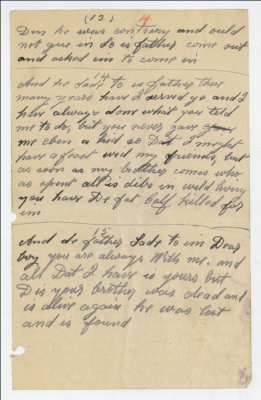 (13) 4
Den he was contrary and ould
not give in so is father come out
and asked im to come in
14
And he sade to is father thee
many years have I served yo and I
have always done what you told
me to do, but you never gave
me eben a kid so Dat I might
have a feast wid my friends, but
as soon as my brother comes who
as spent all is dibs in wild living
you have De fat calf killed for
im
15
And de father sade to im Dear
boy you are always With me. and
all Dat I have is yours but
Dis your brother was dead and
is alive again he was lost
and is found